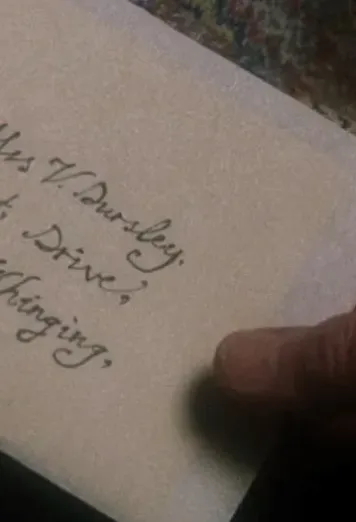 Mrs V. Dursley.
t, Drive,
Whinging,